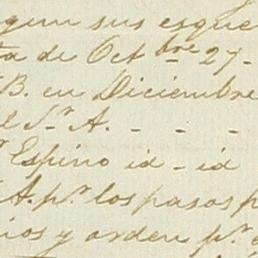 gem sus esque
ta de Oct.bre 27-
B. en Diciembre
el S.r A. - - -
r Espino id - id
A. p.r los pasos p
ios y orden p.r